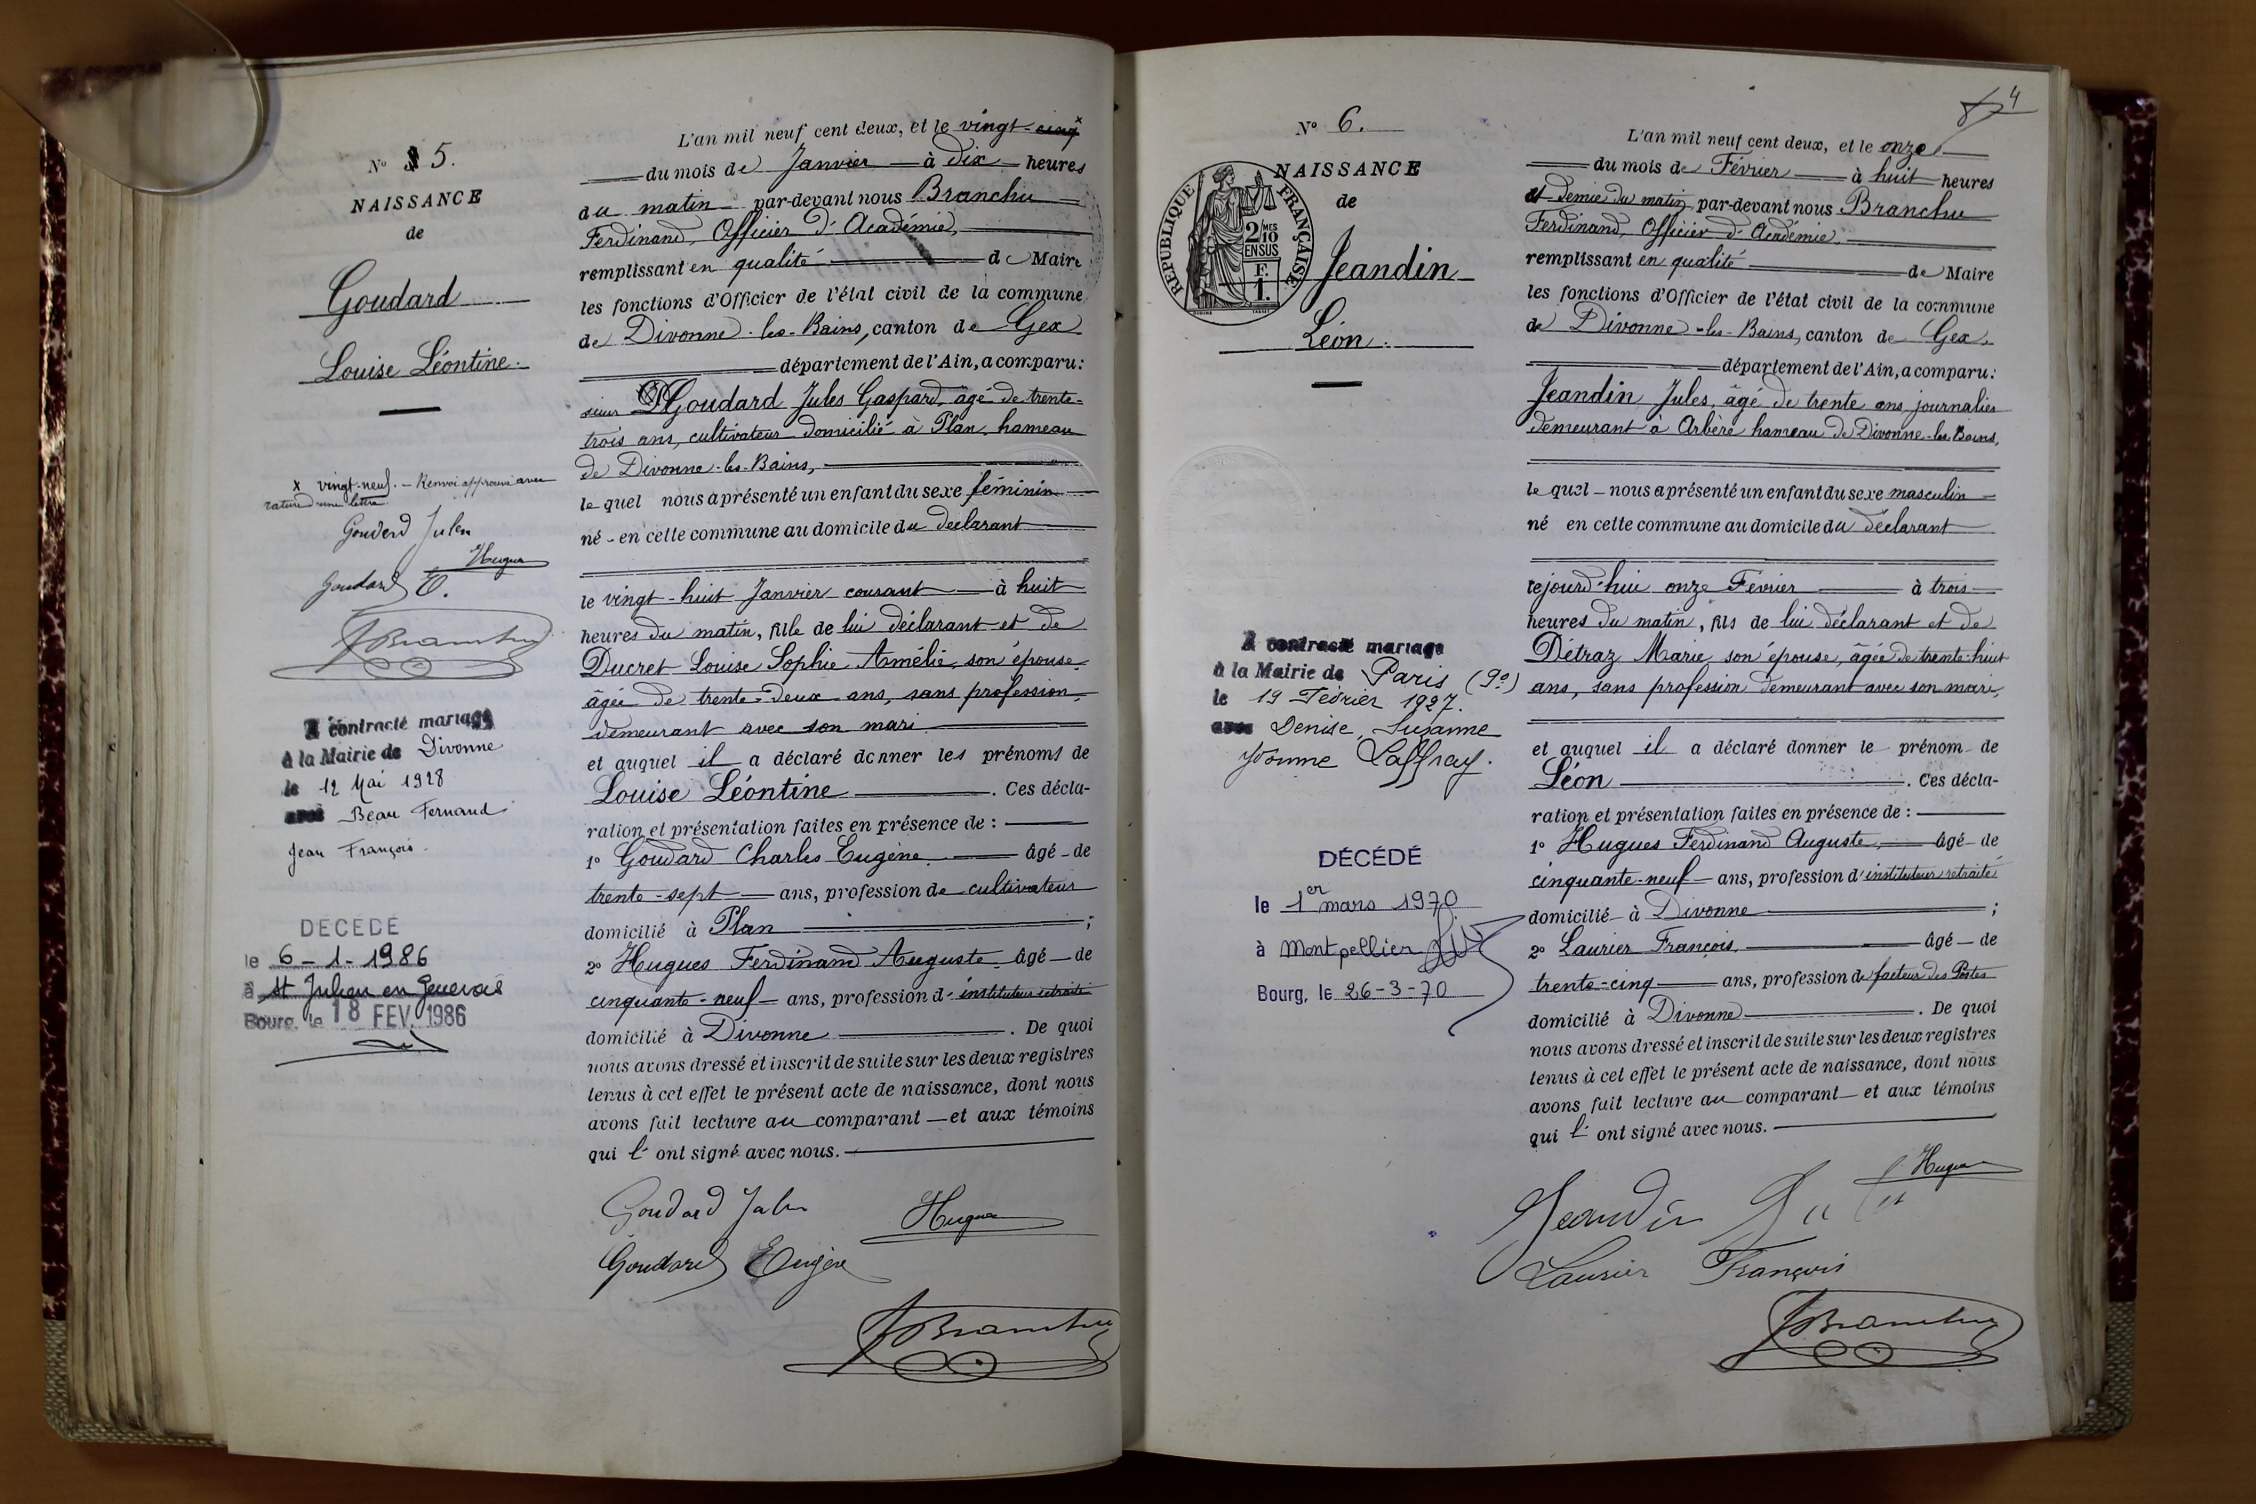 N° 5.
NAISSANCE
de
Goudard
Louise Léontine.
x vingt-neuf. — Renvoi approuvé avec
rature d'une lettre
Goudard Jules
Hugues
Goudard E.
FBranchu
A contracté mariage
à la Mairie de Divonne
le 12 Mai 1928
avec Beau Fernand
Jean François.
DÉCÉDÉ
le 6-1-1986
à St Julien en Genevois
Bourg, le 18 FEV. 1986
L'an mil neuf cent deux, et le vingt-cinq x
du mois de Janvier à dix heures
du matin par-devant nous Branchu
Ferdinand, Officier d'Académie,
remplissant en qualité de Maire
les fonctions d'Officier de l'état civil de la commune
de Divonne-les-Bains, canton de Gex
département de l'Ain, a comparu:
sieur Goudard Jules Gaspard, âgé de trente-
trois ans, cultivateur domicilié à Plan, hameau
de Divonne-les-Bains,
le quel nous a présenté un enfant du sexe féminin
né - en cette commune au domicile du déclarant
le vingt-huit Janvier courant à huit
heures du matin, fille de lui déclarant et de
Ducret Louise Sophie Amélie, son épouse
âgée de trente-deux ans, sans profession,
demeurant avec son mari
et auquel il a déclaré donner les prénoms de
Louise Léontine. Ces décla-
ration et présentation faites en présence de :
1° Goudard Charles Eugène âgé de
trente-sept ans, profession de cultivateur
domicilié à Plan ;
2° Hugues Ferdinand Auguste âgé de
cinquante-neuf ans, profession d'instituteur retraité
domicilié à Divonne. De quoi
nous avons dressé et inscrit de suite sur les deux registres
tenus à cet effet le présent acte de naissance, dont nous
avons fait lecture au comparant et aux témoins
qui l' ont signé avec nous.
Goudard Jules
Hugues
Goudard Eugène
FBranchu
4
N° 6.
NAISSANCE
de
RÉPUBLIQUE FRANÇAISE
2 MES
10
EN SUS
F.
1.
Jeandin
Léon.
A contracté mariage
à la Mairie de Paris (9e)
le 19 Février 1927.
avec Denise, Suzanne
Yvonne Laffray.
DÉCÉDÉ
le 1er mars 1970
à Montpellier
Bourg, le 26-3-70
L'an mil neuf cent deux, et le onze
du mois de Février à huit heures
et demie du matin par-devant nous Branchu
Ferdinand, Officier d'Académie,
remplissant en qualité de Maire
les fonctions d'Officier de l'état civil de la commune
de Divonne-les-Bains, canton de Gex,
département de l'Ain, a comparu:
Jeandin Jules, âgé de trente ans, journalier
demeurant à Arbère hameau de Divonne-les-Bains,
le quel - nous a présenté un enfant du sexe masculin
né en cette commune au domicile du déclarant
cejourd'hui onze Février à trois
heures du matin, fils de lui déclarant et de
Détraz Marie son épouse, âgée de trente-huit
ans, sans profession demeurant avec son mari,
et auquel il a déclaré donner le prénom de
Léon. Ces décla-
ration et présentation faites en présence de :
1° Hugues Ferdinand Auguste, âgé de
cinquante-neuf ans, profession d'instituteur retraité
domicilié à Divonne ;
2° Laurier François âgé de
trente-cinq ans, profession de facteur des Postes
domicilié à Divonne. De quoi
nous avons dressé et inscrit de suite sur les deux registres
tenus à cet effet le présent acte de naissance, dont nous
avons fait lecture au comparant et aux témoins
qui l' ont signé avec nous.
Hugues
Jeandin Jules
Laurier François
FBranchu